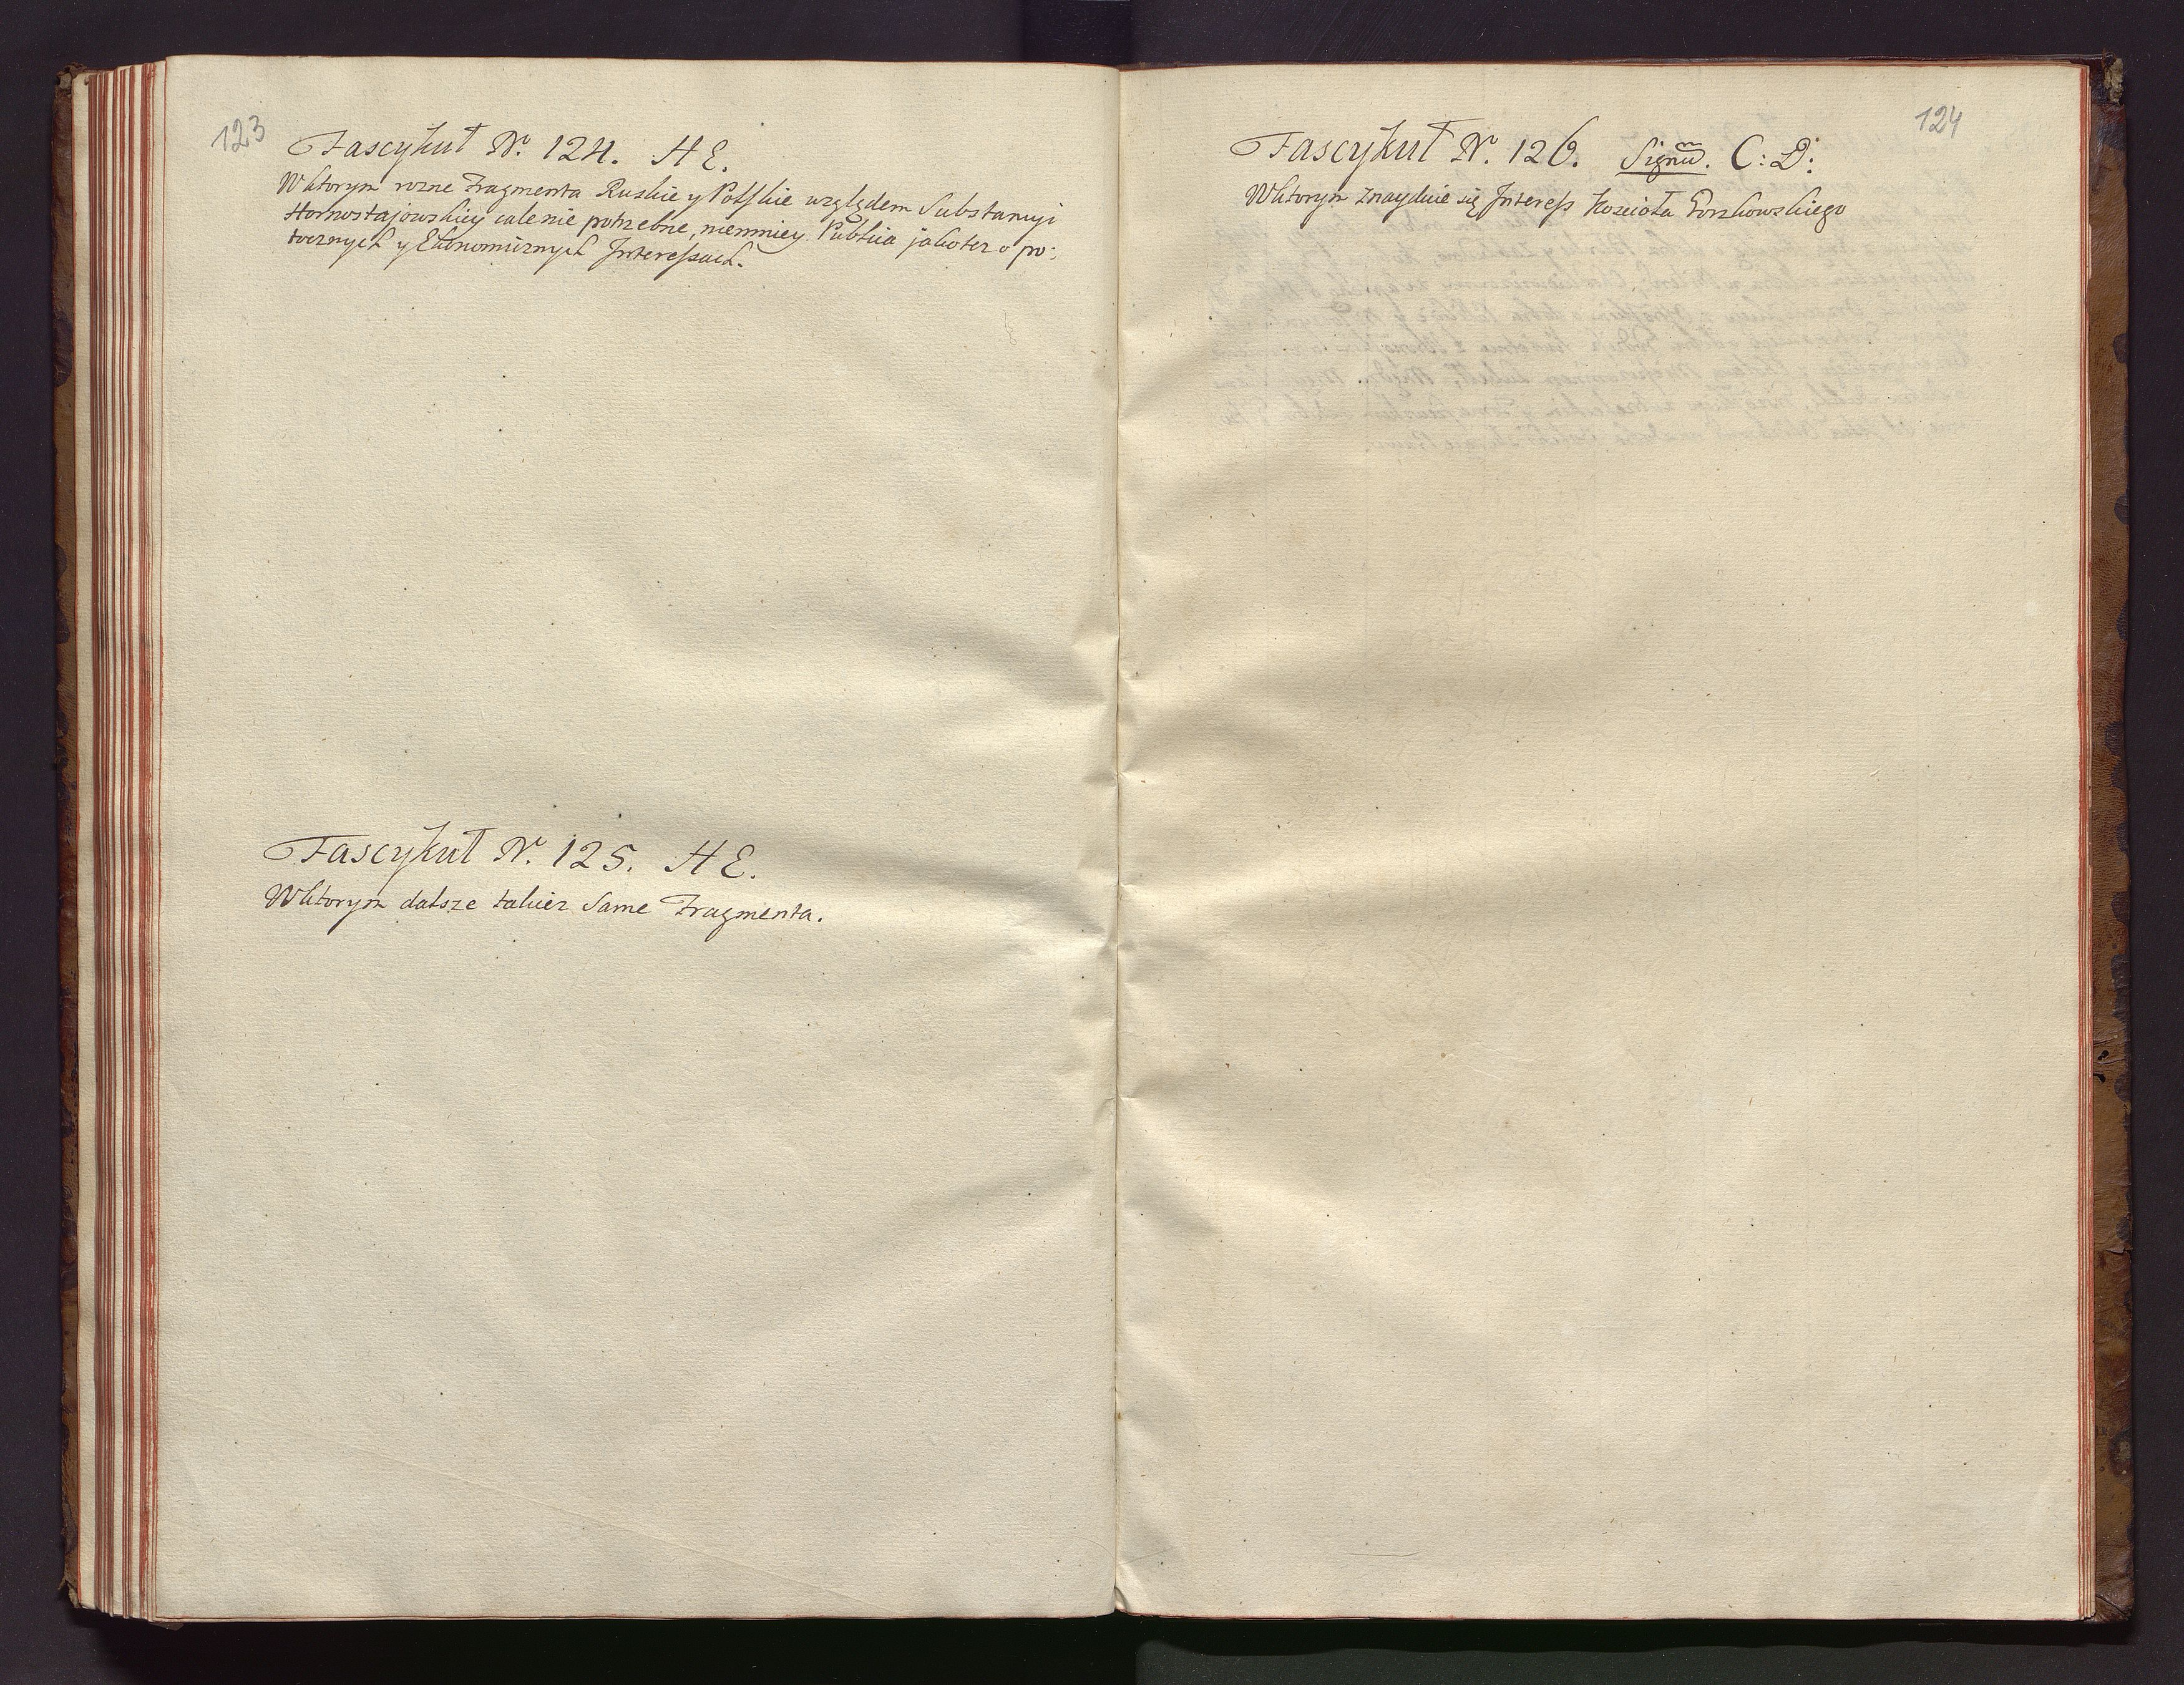 123
Fascykuł N. 124. H E.
W ktorym rozne Fragmenta Ruskie y Polskie względem Substancyi
Hornostajowskiey cale nie potrzebne, niemniey Publica jako tez o po:
tocznych y Ekonomicznych Interessach.
Fascykuł N. 125. H E.
W ktorym dalsze takiez same Fragmenta.
124
Fascykuł N. 126. Signū. C: D:
W ktorym znayduie się Interess Koscioła Torzkowskiego